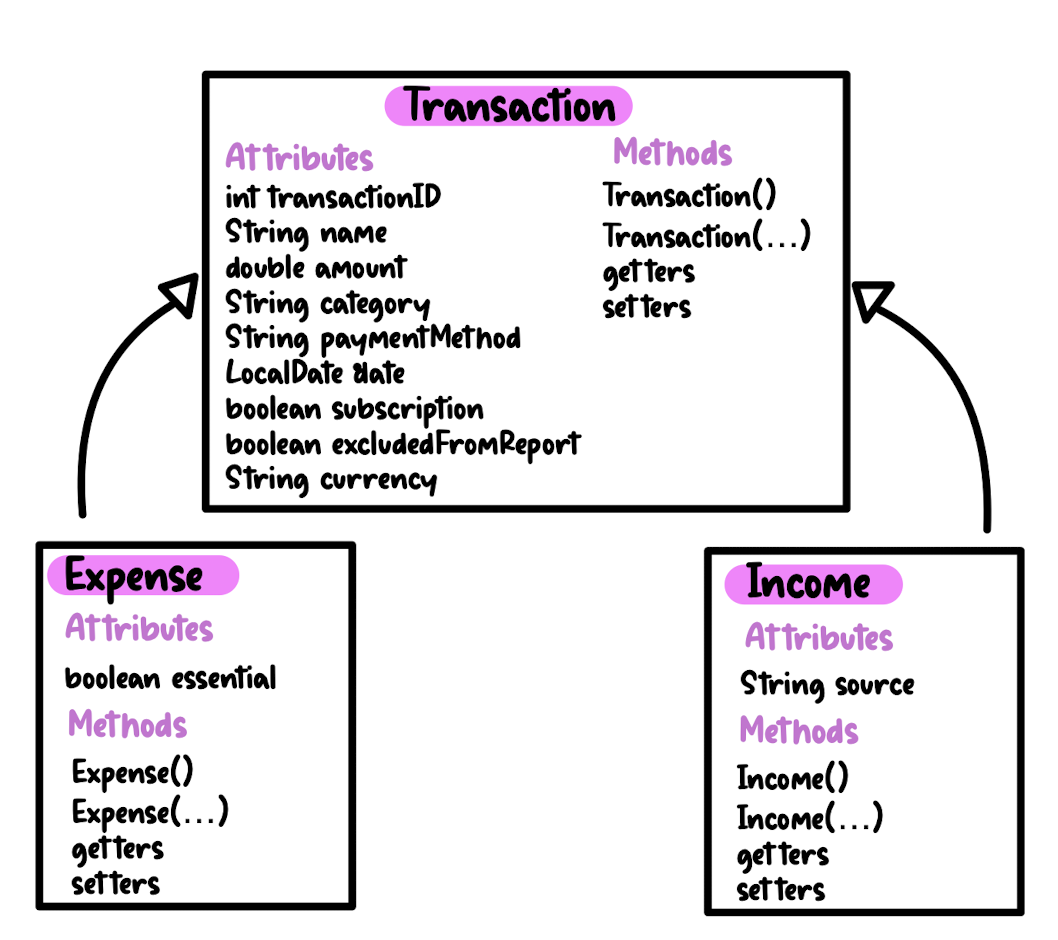 Transaction
Attributes
int transactionID
String name
double amount
String category
String paymentMethod
LocalDate date
boolean subscription
boolean excludedFromReport
String currency
Methods
Transaction()
Transaction(...)
getters
setters
Expense
Attributes
boolean essential
Methods
Expense()
Expense(...)
getters
setters
Income
Attributes
String source
Methods
Income()
Income(...)
getters
setters